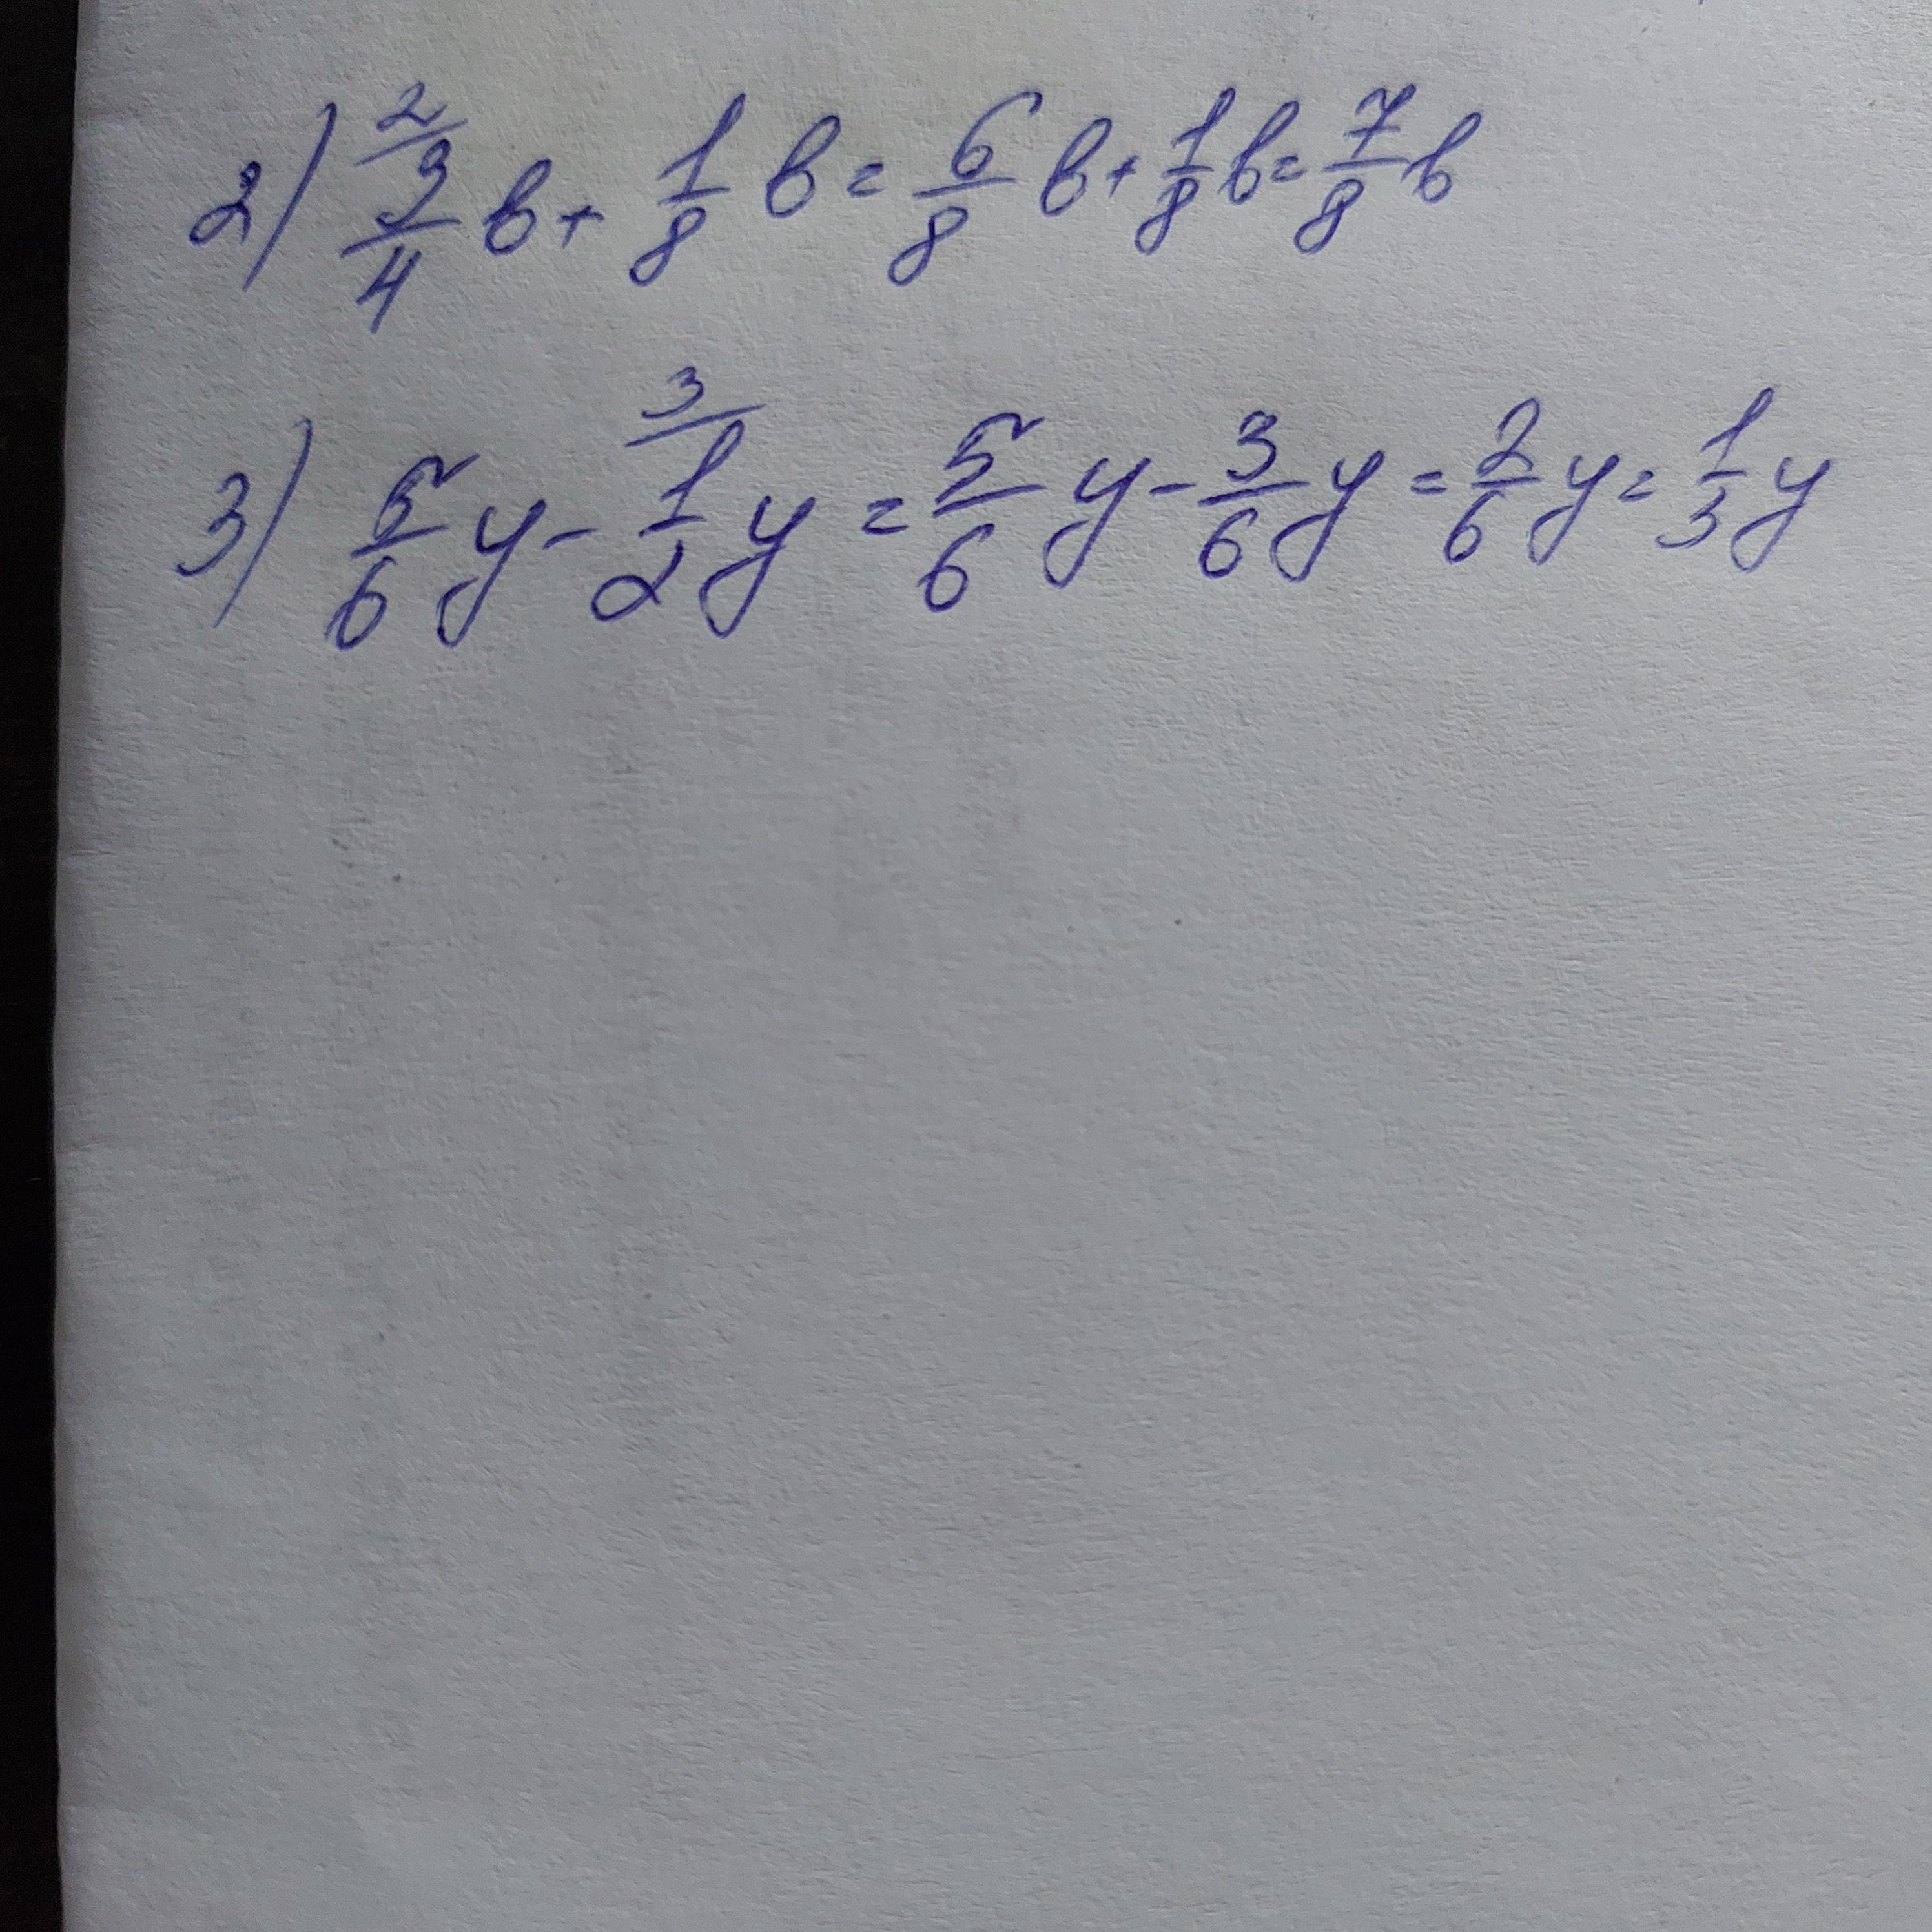 2) 2/ 3/4 b + 1/8 b = 6/8 b + 1/8 b = 7/8 b
3) 5/6 y - 3/ 1/2 y = 5/6 y - 3/6 y = 2/6 y = 1/3 y